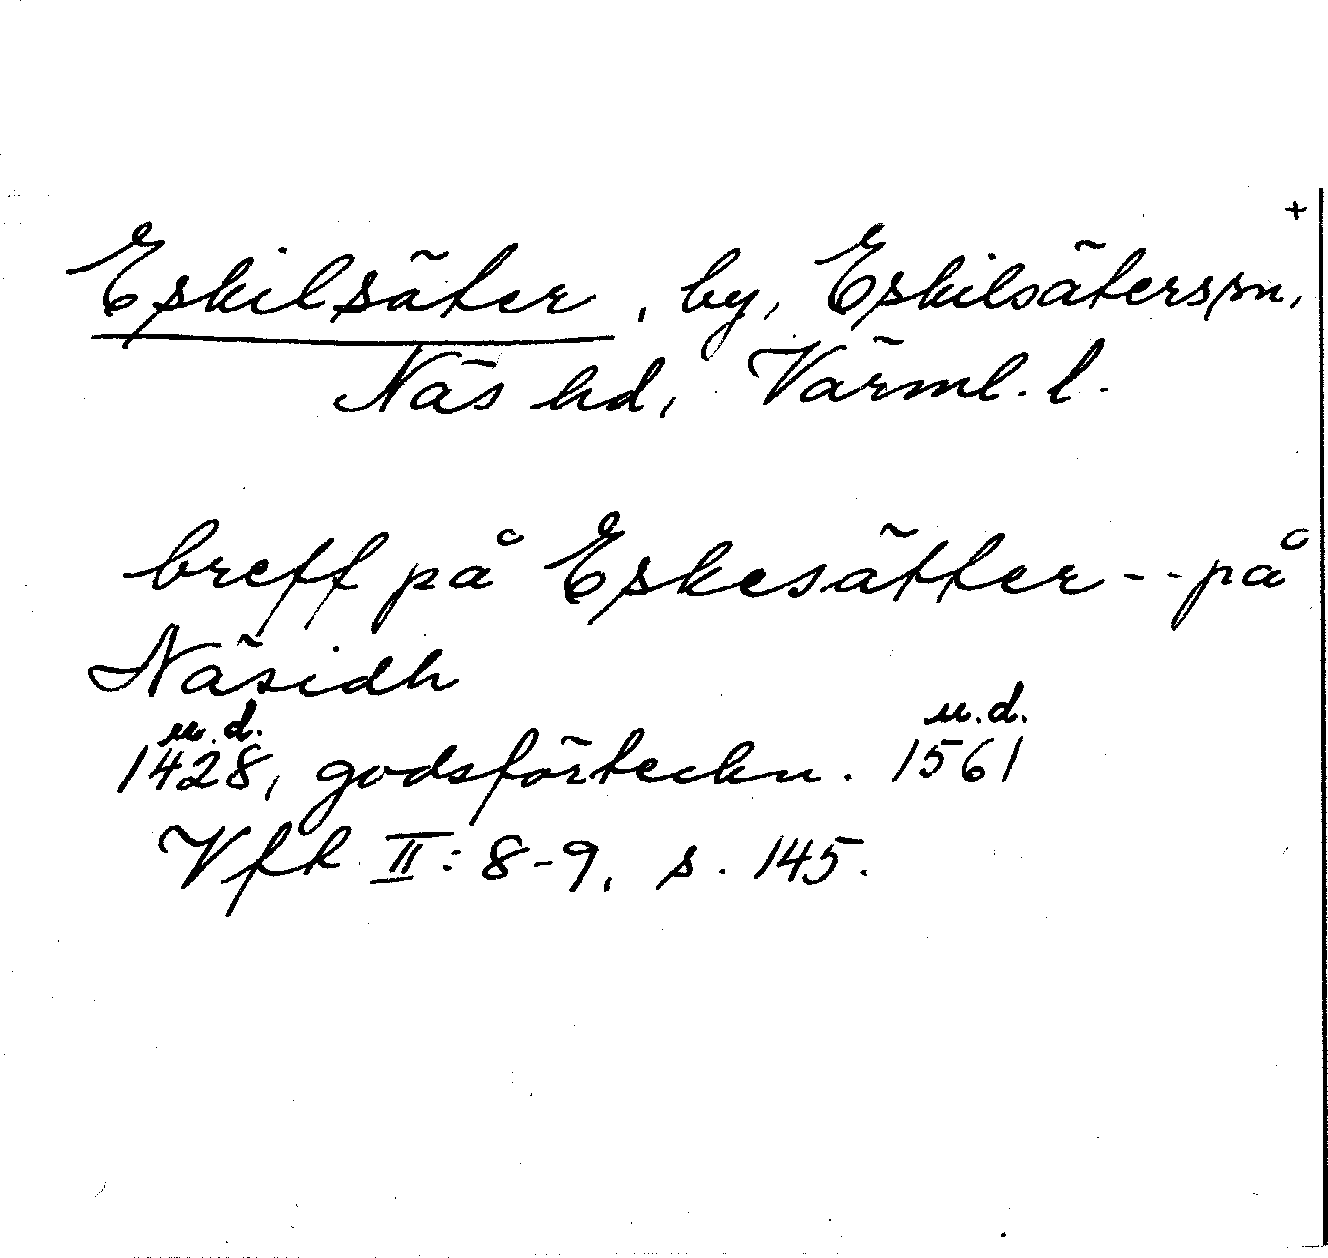 +
Eskilsäter, by, Eskilsäters sn,
Näs hd, Värml. l.
breff på Eskesätter -- på
Näsidh
u.d. u.d.
1428, godsförteckn. 1561
Vfh II: 8-9, s. 145.